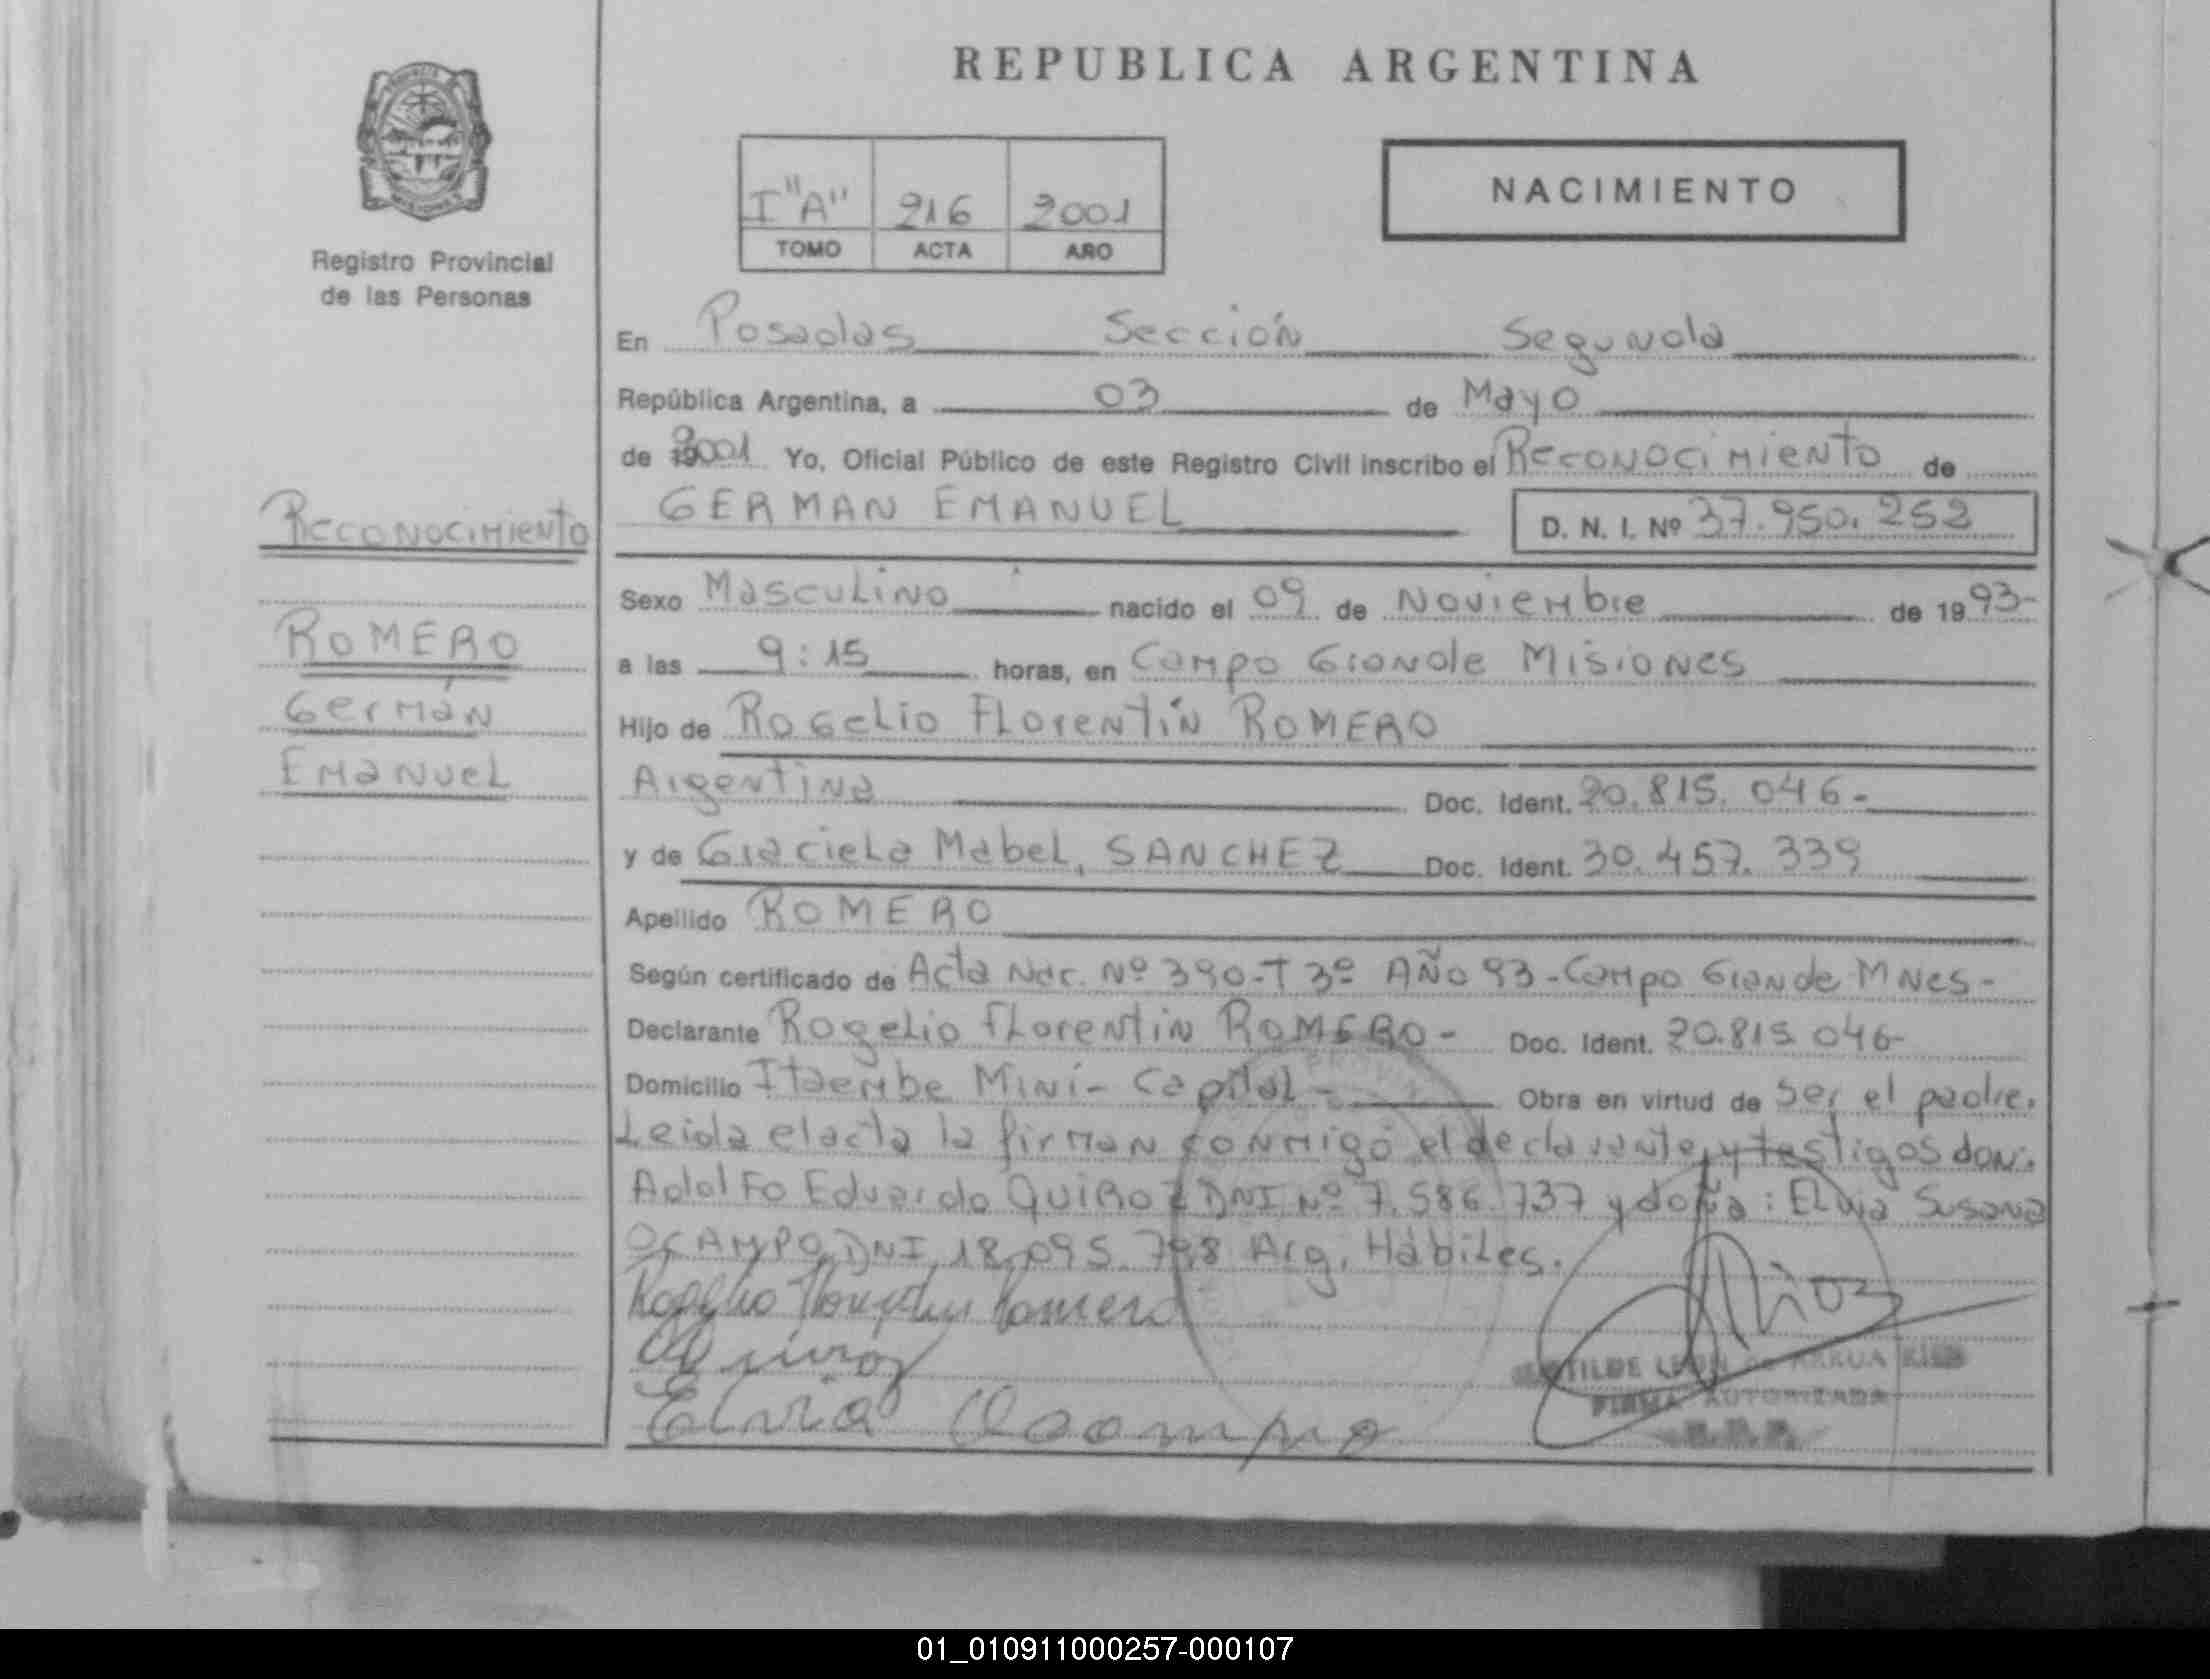 REPUBLICA ARGENTINA
I "A" 216 2001
TOMO ACTA AÑO
NACIMIENTO
Registro Provincial
de las Personas
En Posadas Sección Segunda
República Argentina, a 03 de Mayo
de 2001 Yo, Oficial Público de este Registro Civil inscribo el Reconocimiento de
GERMAN EMANUEL D. N. I. Nº 37.950.252
Reconocimiento
ROMERO
Germán
Emanuel
Sexo Masculino nacido el 09 de Noviembre de 1993-
a las 9:15 horas, en Campo Grande Misiones
Hijo de Rogelio Florentín ROMERO
Argentina Doc. Ident. 20.815.046-
y de Graciela Mabel, SANCHEZ Doc. Ident. 30.457.339
Apellido ROMERO
Según certificado de Acta Nac. Nº 390-T 3º AÑO 93-Campo Grande Mnes-
Declarante Rogelio Florentin ROMERO- Doc. Ident. 20.815.046-
Domicilio Itaembe Miní- Capital- Obra en virtud de ser el padre.
Leida el acta la firman conmigo el declarante, y testigos don:
Adolfo Eduardo QUIROZ DNI Nº 7.586.737 y doña: Elvia Susana
OCAMPO, DNI 18.095.798 Arg. Hábiles.
Rogelio Florentin Romero
Quiroz
Elvia Ocampo
FIRMA AUTORIZADA
01_010911000257-000107